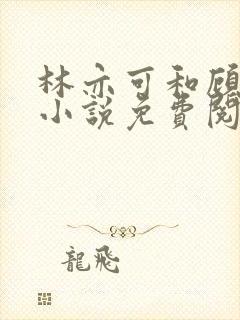 林亦可和顾
小說免費閱
龍飛